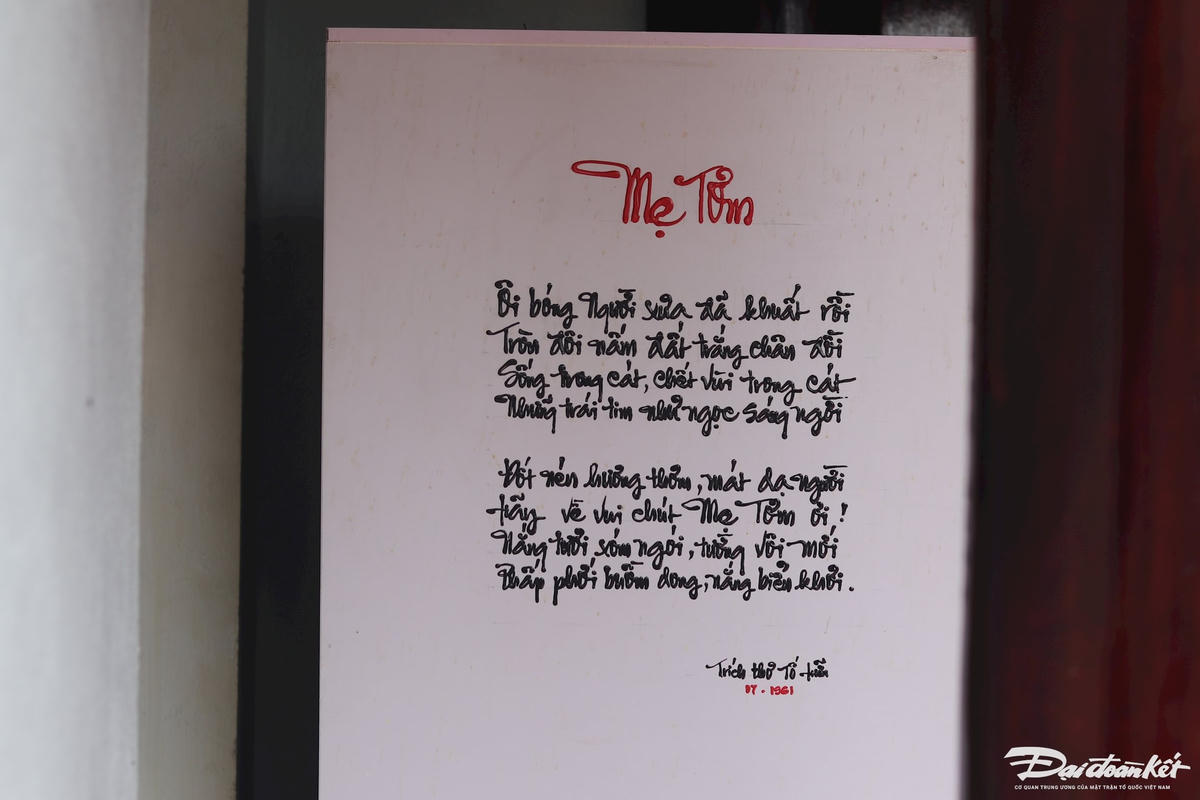 Mẹ Tơm
Ôi bóng Người xưa đã khuất rồi
Tròn đôi nấm đất trắng chân đồi
Sống trong cát, chết vùi trong cát
Những trái tim như ngọc sáng ngời
Đốt nén hương thơm, mát dạ người
Hãy về vui chút Mẹ Tơm ơi!
Nắng tươi xóm ngói, tường vôi mới
Phấp phới buồm dong, nắng biển khơi.
Trích thơ Tố Hữu
07 - 1961
Đại đoàn kết
CƠ QUAN TRUNG ƯƠNG CỦA MẶT TRẬN TỔ QUỐC VIỆT NAM